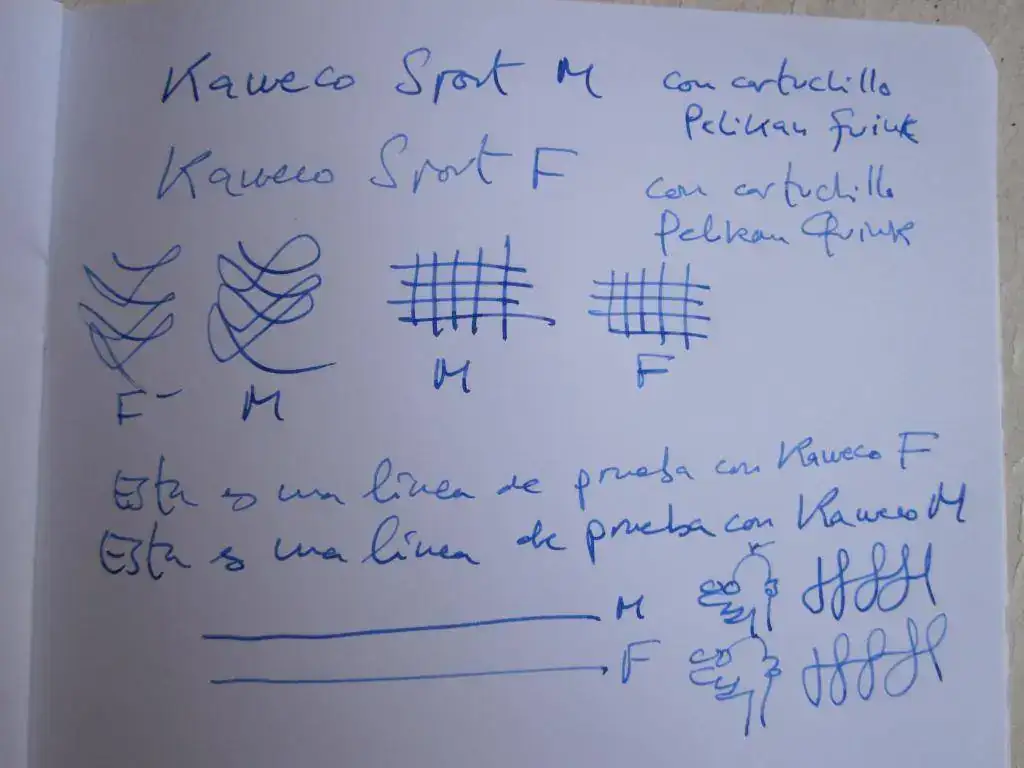 Kaweco Sport M con cartuchillo
Pelikan Quink
Kaweco Sport F con cartuchillo
Pelikan Quink
F M
M F
Esta es una línea de prueba con Kaweco F
Esta es una línea de prueba con Kaweco M
M
F